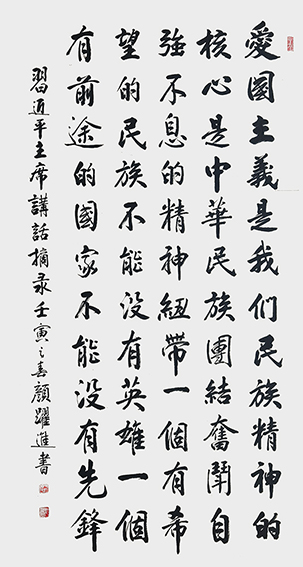 愛國主義是我们民族精神的
核心是中華民族團結奮鬥自
強不息的精神紐帶一個有希
望的民族不能没有英雄一個
有前途的國家不能没有先鋒
習近平主席講話摘录壬寅之春顔躍進書